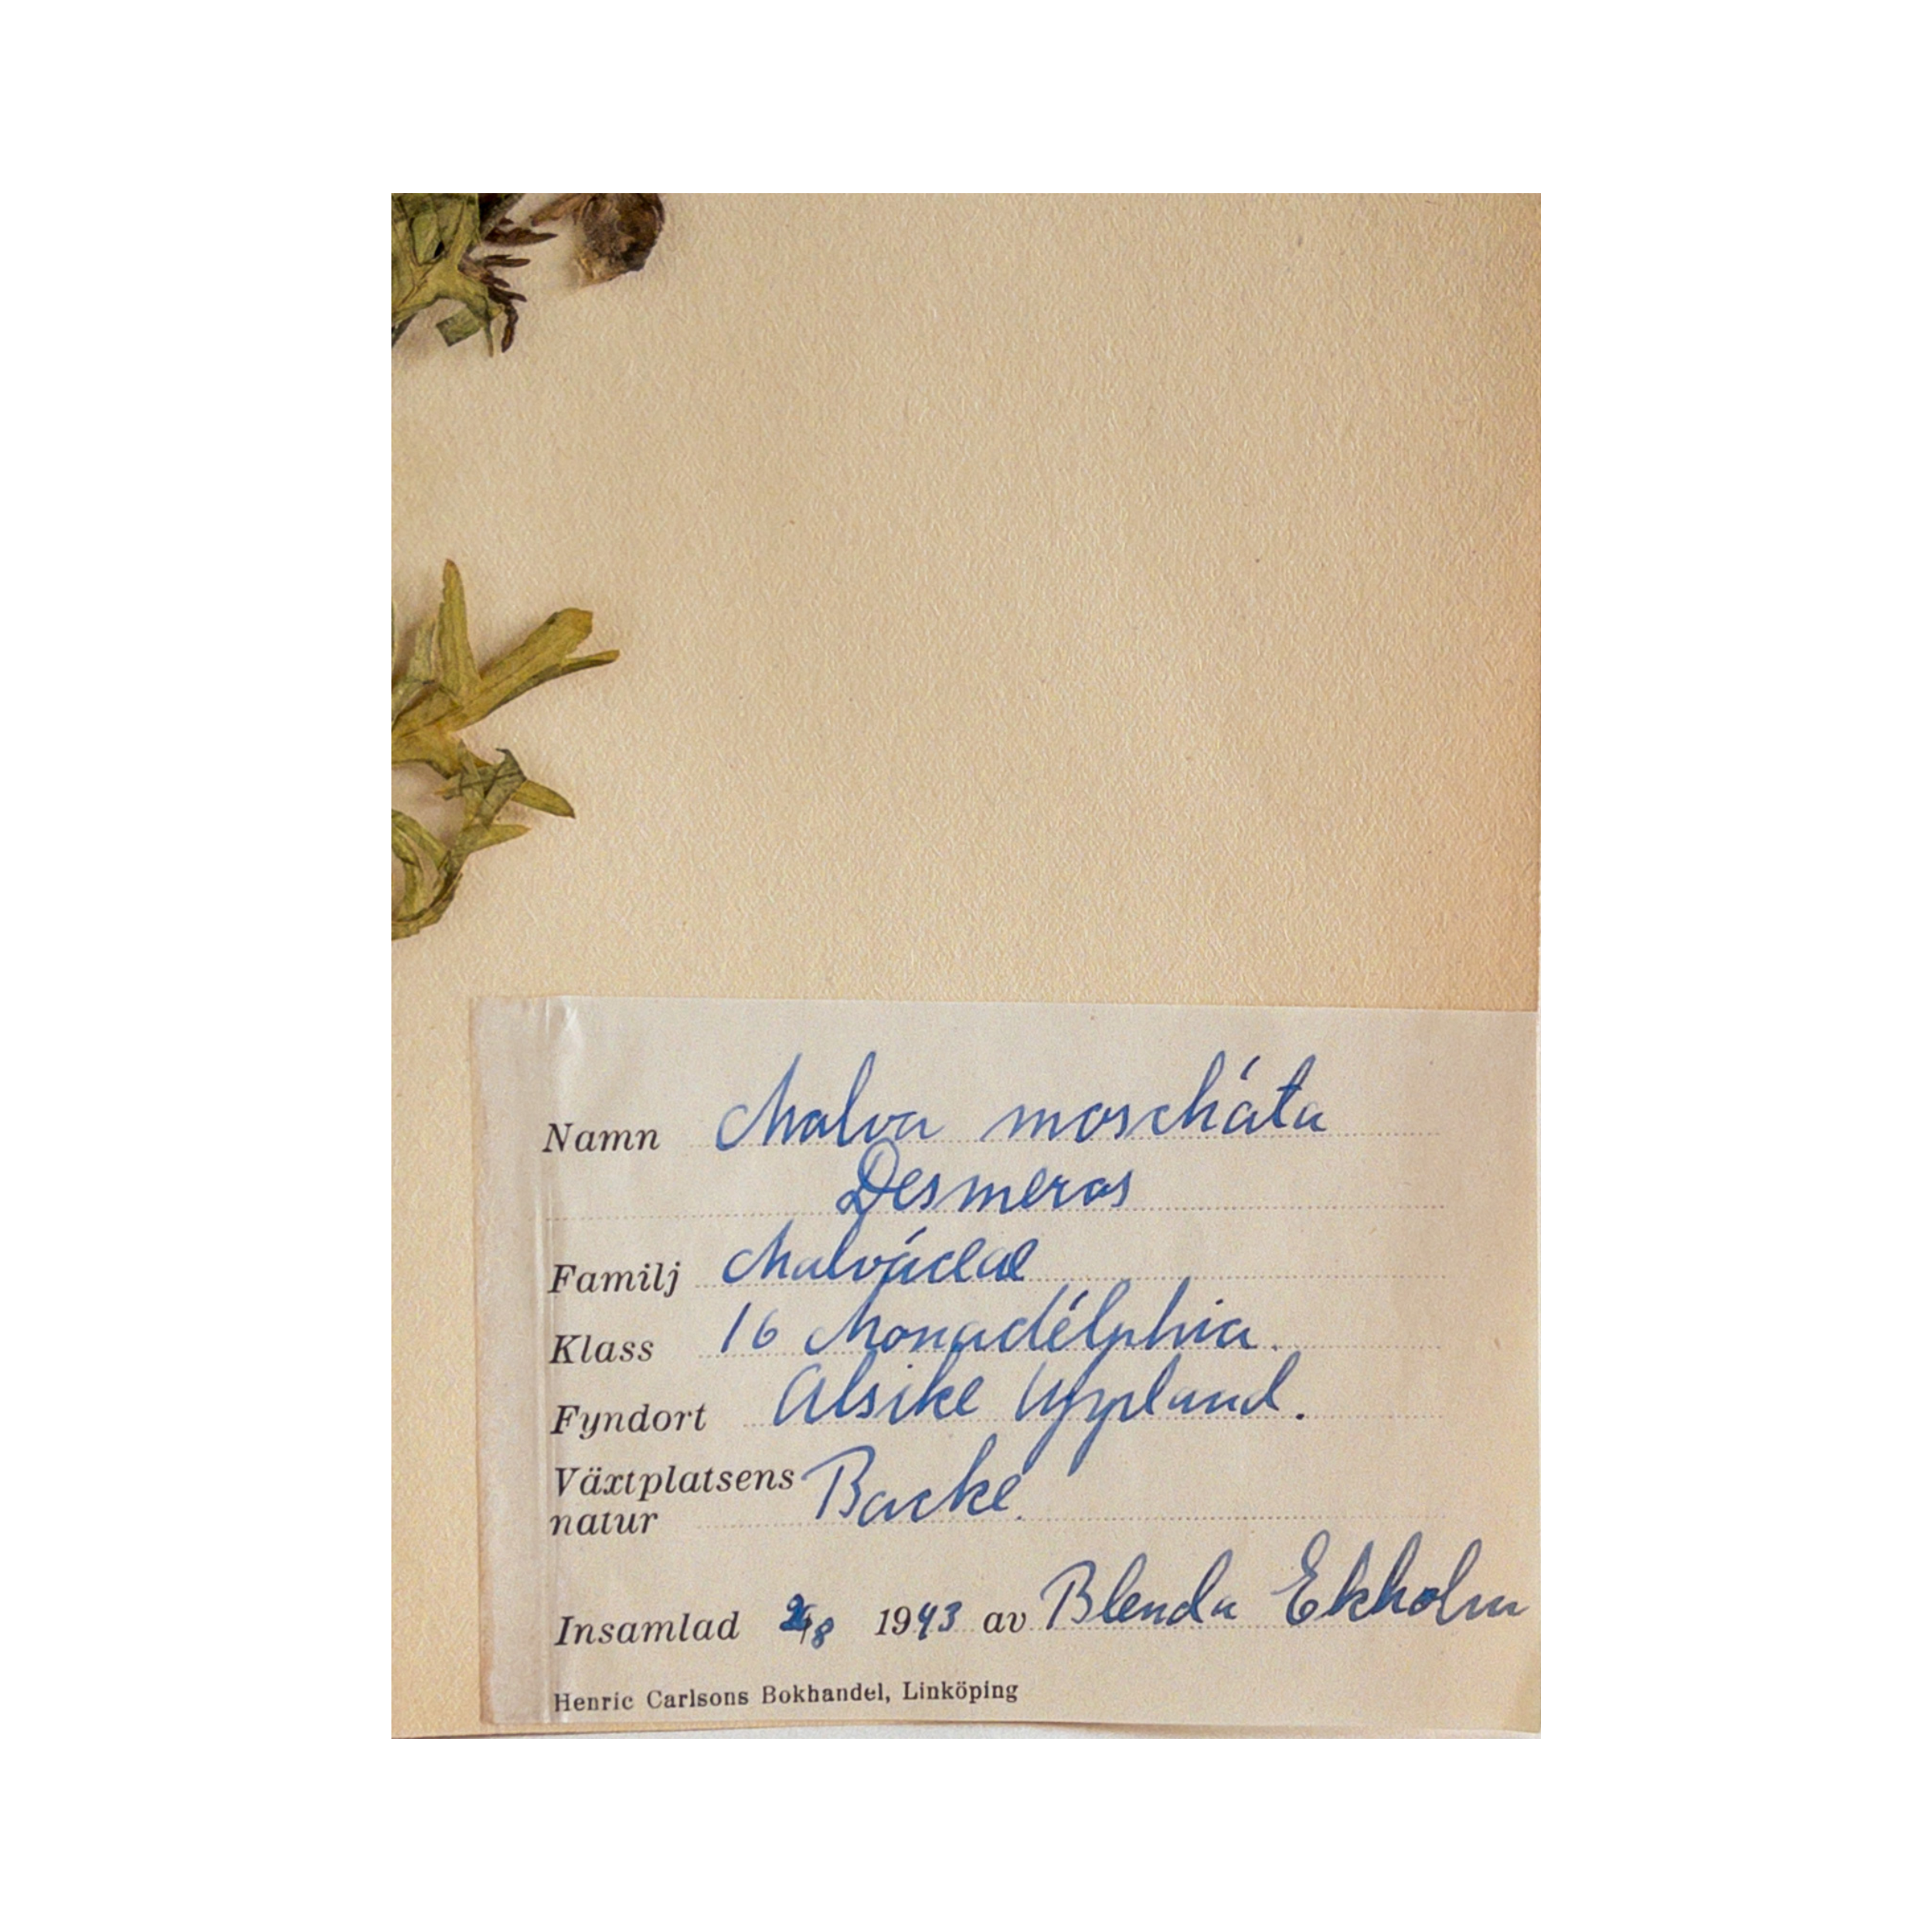 Namn Malva moscháta
Desmeros
Familj Malváceae
Klass 16 Monadélphia.
Fyndort Alsike Uppland.
Växtplatsens
natur Backe.
Insamlad 1943 av Blenda Ekholm
Henric Carlsons Bokhandel, Linköping